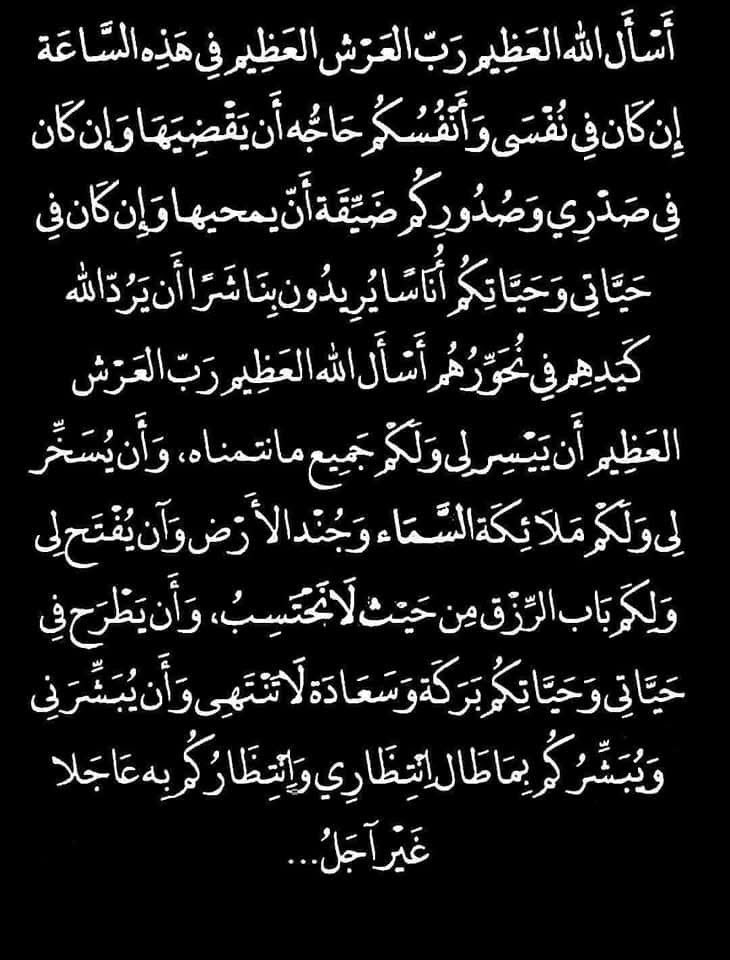 أَسْأَل الله العَظِيم رَبّ العَرْش العَظِيم فِي هَذِه السَّاعَة
إِن كَان فِي نُفْسَى وَأَنْفُسُكُم حَاجُّه أَن يَقْضِيَهَا وَإِن كَان
فِي صَدْرِي وَصُدُورِكُم ضَيِّقَة أَنّ يمحيها وَإِن كَان فِي
حَيَّاتِي وَحَيَّاتِكُم أُنَاسًا يُرِيدُون بِنَا شَرًا أَن يَرُدّ الله
كَيَدِهِم فِي نُحَوِّرُهُم أَسْأَل الله العَظِيم رَبّ العَرْش
العَظِيم أَن يَيْسِر لِي وَلَكُمْ جَمِيع مانتمناه، وَأَن يُسَخِّر
لِى وَلَكُمْ مَلَائِكَة السَّمَاء وَجُنْد الأَرْض وَآن يُفْتَح لِى
وَلِكَم بَاب الرِّزْق مِن حَيْث لَا نَحْتَسِبُ، وَأَن يَطْرَح فِي
حَيَّاتِي وَحَيَّاتِكُم بَرَكَة وَسَعَادَة لَا تَنْتَهِى وَأَن يُبَشِّرَنِي
وَيُبَشِّرُكُم بِمَا طَال اِنْتِظَارِي وَاِنْتِظَارُكُم بِه عَاجَلا
غَيْر آجَلُ...